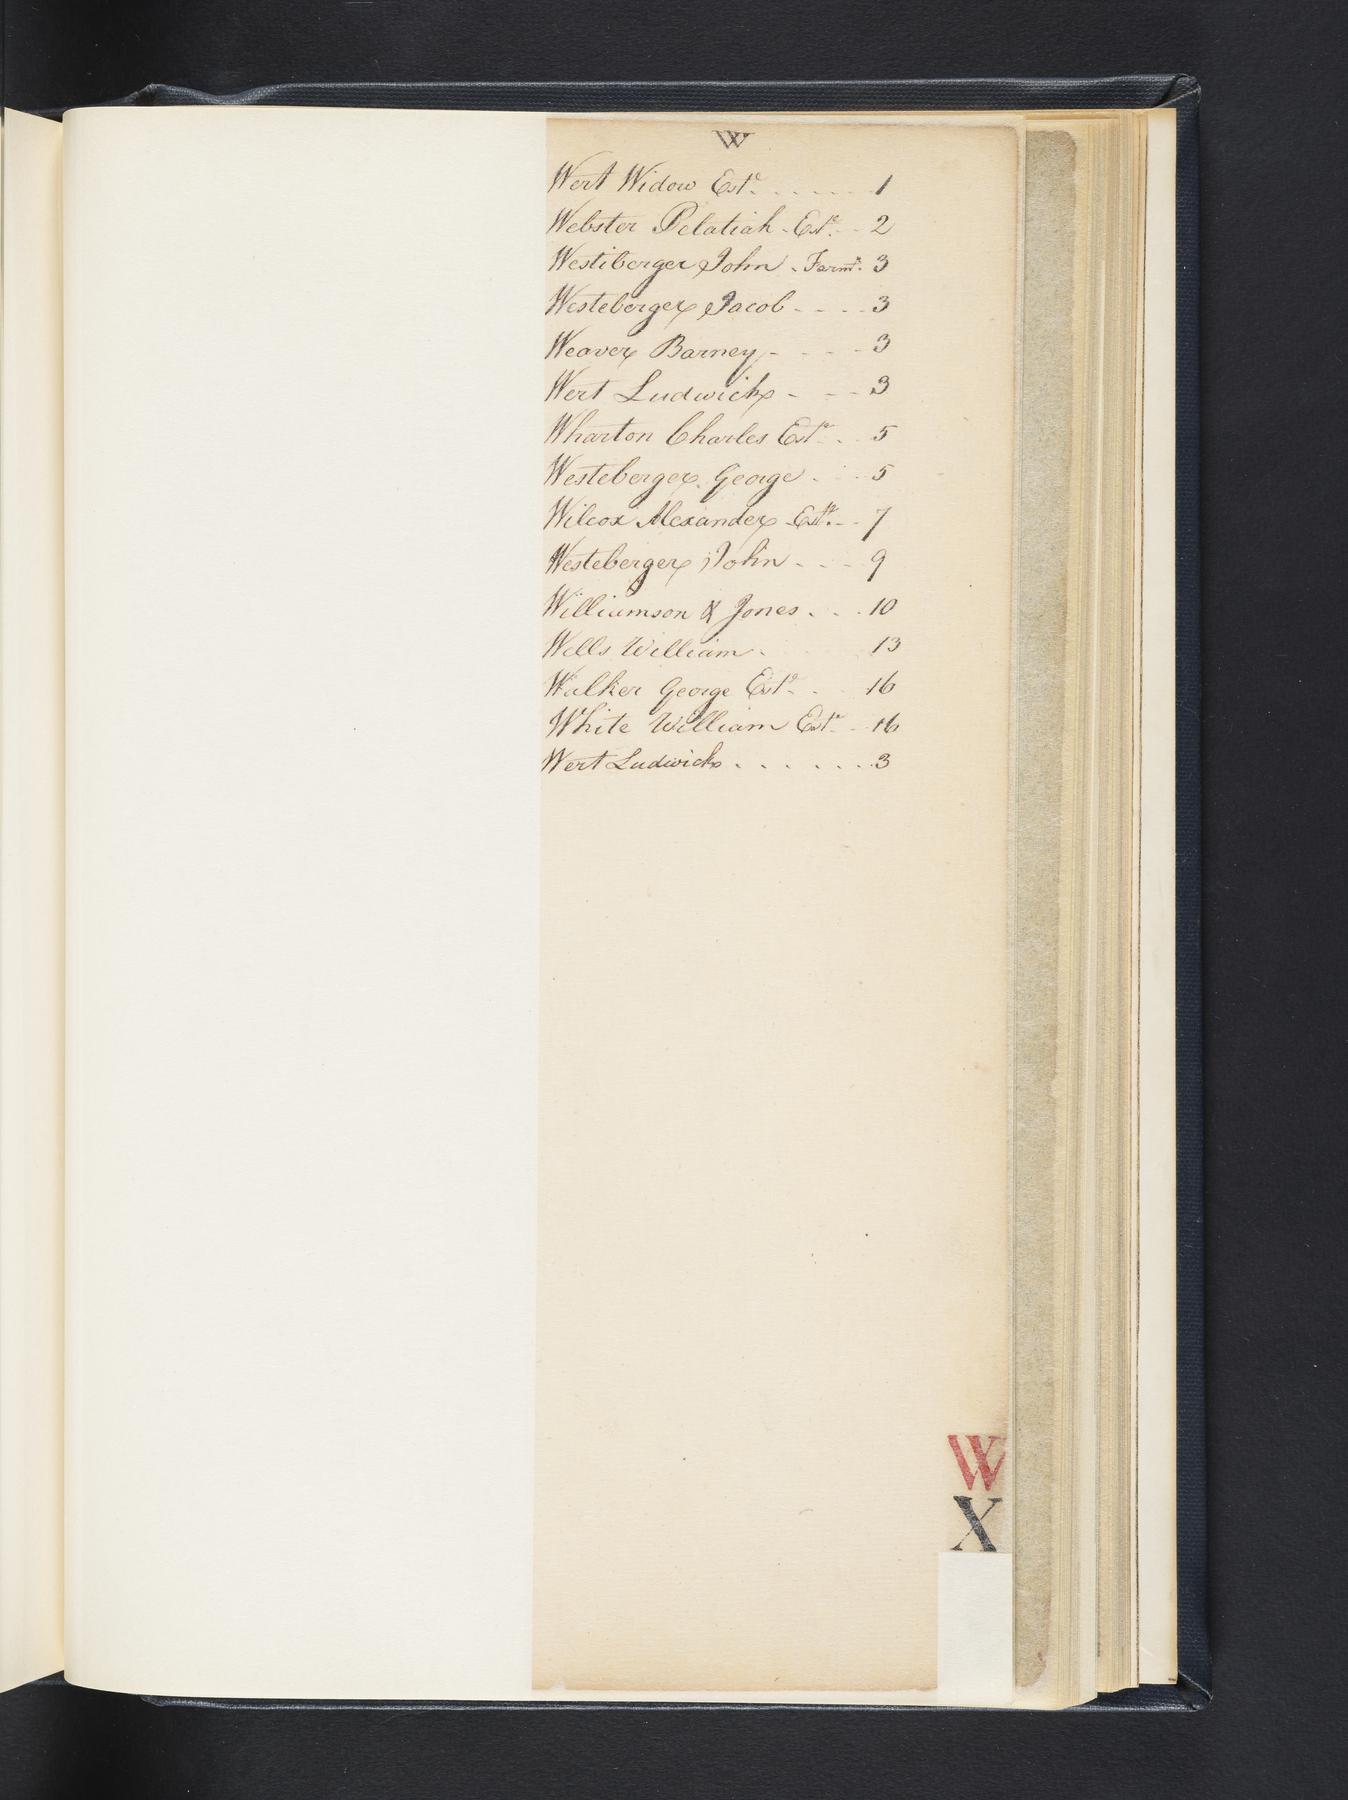 W
Wert Widow Este. . . . . . . 1
Webster Pelatiah - Este. - - 2
Westiberger John - Farmr. 3
Westeberger Jacob - - - - 3
Weaver Barney - - - - 3
Wert Ludwick - - - - 3
Wharton Charles Este. . 5
Westeberger George . - - 5
Wilcox Alexander - Este. - - 7
Westeberger John - - - - 9
Williamson & Jones . . . 10
Wells William . 13
Walker George Este. . 16
White William Este. - 16
Wert Ludwick . . . . . . . 3
W
X